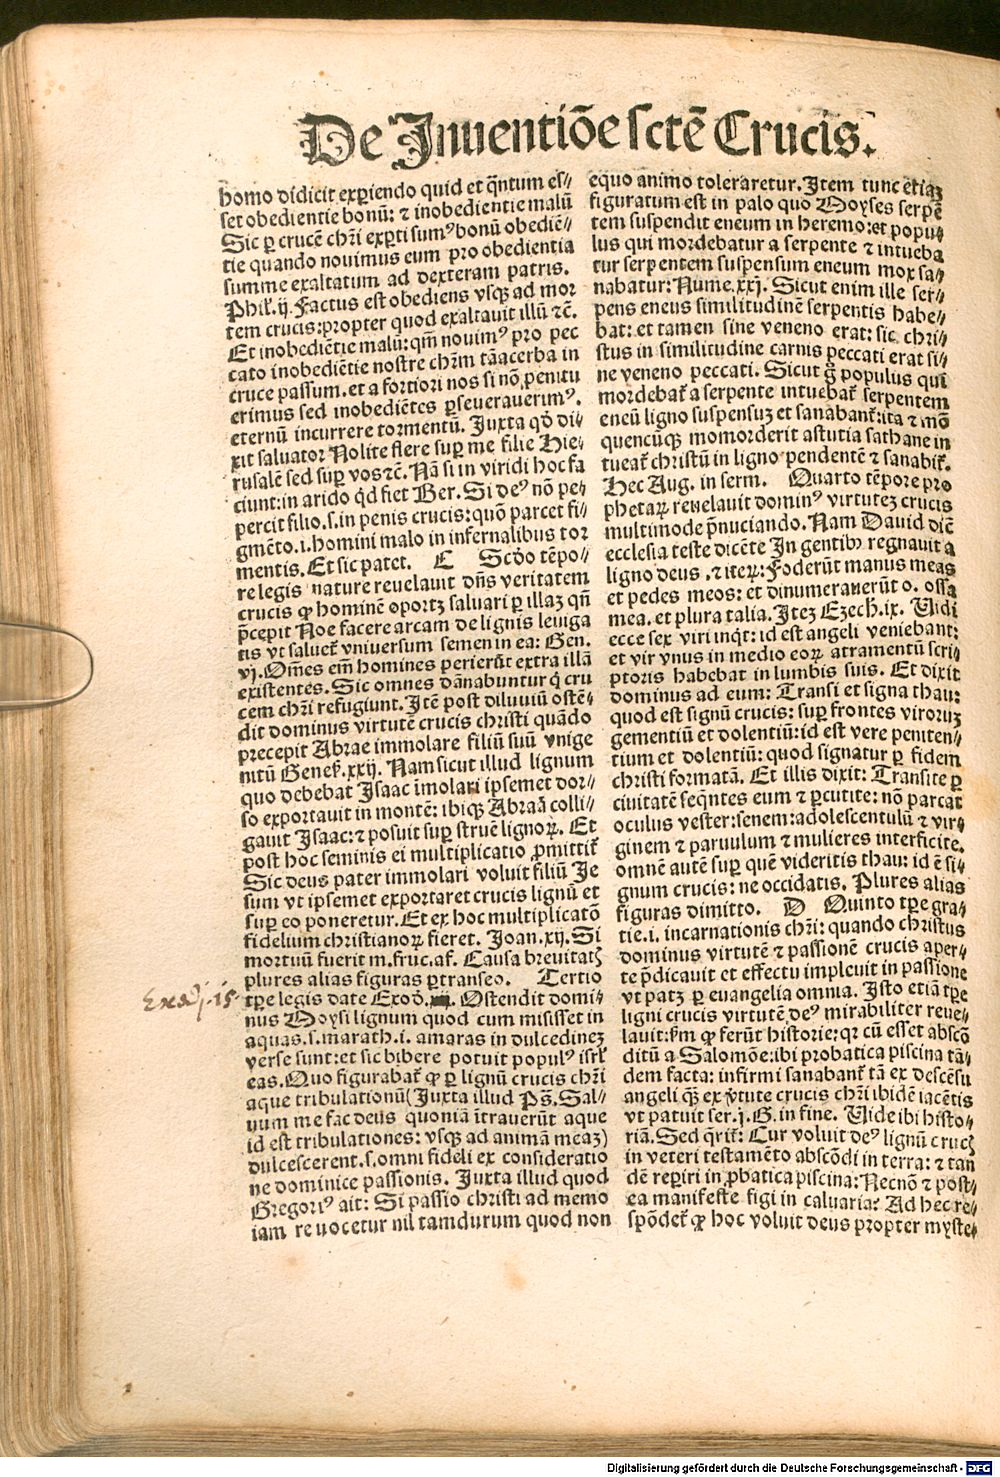 De Inuentiōe sctē Crucis.
homo didicit exꝑiendo quid et q̄ntum es//
set obedientie bonū: ⁊ inobedientie malū
Sic ꝑ crucē chr̄i exꝑti sumꝰ bonū obediē//
tie quando nouimus eum pro obedientia
summe exaltatum ad dexteram patris.
Phil. ij. Factus est obediens vsqꝫ ad mor
tem crucis: propter quod exaltauit illū ⁊c̄.
Et inobediētie malū: qm̄ nouimꝰ pro pec
cato inobediētie nostre chr̄m tā acerba in
cruce passum. et a fortiori nos si nō penitu
erimus sed inobediētes ꝑseuerauerimꝰ.
eternū incurrere tormentū. Juxta qd̓ di//
xit saluator Nolite flere suꝑ me filie Hie//
rusalē sed suꝑ vos ⁊c̄. Nā si in viridi hoc fa
ciunt: in arido qd̓ fiet Ber. Si deꝰ nō pe//
percit filio .s. in penis crucis: quō parcet fi//
gmēto .i. homini malo in infernalibus tor
mentis. Et sic patet. C Scd̓o tēpo//
re legis nature reuelauit dn̄s veritatem
crucis ꝙ hominē oportꝫ saluari ꝑ illaꝫ qn̄
p̄cepit Noe facere arcam de lignis leuiga
tis vt saluet̄ vniuersum semen in ea: Gen.
vj. Om̄es em̄ homines perierūt extra illā
existentes. Sic omnes dānabuntur q̇ cru
cem chr̄i refugiunt. Itē post diluuiū ostē//
dit dominus virtutē crucis christi quādo
precepit Abrae immolare filiū suū vnige
nitū Genes̄. xxij. Nam sicut illud lignum
quo debebat Isaac īmolari ipsemet dor//
so exportauit in montē: ibiqꝫ Abraā colli//
gauit Isaac: ⁊ posuit suꝑ struē lignoꝝ. Et
post hoc seminis ei multiplicatio ꝓmittit̄
Sic deus pater immolari voluit filiū Je
sum vt ipsemet exportaret crucis lignū et
suꝑ eo poneretur. Et ex hoc multiplicatō
fidelium christianoꝝ fieret. Joan. xij. Si
mortuū fuerit m. fruc. af. Causa breuitatꝭ
plures alias figuras ꝑtranseo. Tertio
tꝑe legis date Exod̓. Ostendit domi//
nus Moysi lignum quod cum misisset in
aquas .s. marath .i. amaras in dulcedineꝫ
verse sunt: et sic bibere potuit populꝰ isrl̄
eas. Quo figurabat̄ ꝙ ꝑ lignū crucis chr̄i
aque tribulationū (Juxta illud Ps̄. Sal//
uum me fac deus quoniā ītrauerūt aque
id est tribulationes: vsqꝫ ad animā meaꝫ)
dulcescerent .s. omni fideli ex consideratio
ne dominice passionis. Juxta illud quod
Gregoriꝰ ait: Si passio christi ad memo
riam reuocetur nil tam durum quod non
Exod. 15
equo animo toleraretur. Item tunc etiaꝫ
figuratum est in palo quo Moyses serpē
tem suspendit eneum in heremo: et popu//
lus qui mordebatur a serpente ⁊ intueba
tur serpentem suspensum eneum mox sa//
nabatur: Nume. xxj. Sicut enim ille ser//
pens eneus similitudinē serpentis habe//
bat: et tamen sine veneno erat: sic chri//
stus in similitudine carnis peccati erat si//
ne veneno peccati. Sicut g̊ populus qui
mordebat̄ a serpente intuebat̄ serpentem
eneū ligno suspensuꝫ et sanabant̄: ita ⁊ mō
quencūqꝫ momorderit astutia sathane in
tueat̄ christū in ligno pendentē ⁊ sanabit̄.
Hec Aug. in serm. Quarto tēpore pro
phetaꝝ reuelauit dominꝰ virtuteꝫ crucis
multimode p̄nuciando. Nam Dauid diē
ecclesia teste dicēte In gentibꝰ regnauit a
ligno deus. ⁊ iteꝝ: Foderūt manus meas
et pedes meos: et dinumerauerūt o. ossa
mea. et plura talia. Iteꝫ Ezech. ix. Uidi
ecce sex viri inqt̄: id est angeli veniebant:
et vir vnus in medio eoꝝ atramentū scri//
ptoris habebat in lumbis suis. Et dixit
dominus ad eum: Transi et signa thau:
quod est signū crucis: suꝑ frontes viroruꝫ
gementiū et dolentiū: id est vere peniten//
tium et dolentiū: quod signatur ꝑ fidem
christi formatā. Et illis dixit: Transite ꝑ
ciuitatē seq̄ntes eum ⁊ ꝑcutite: nō parcat
oculus vester: senem: adolescentulū ⁊ vir//
ginem ⁊ paruulum ⁊ mulieres interficite.
omnē autē suꝑ quē videritis thau: id ē si//
gnum crucis: ne occidatis. Plures alias
figuras dimitto. D Quinto tꝑe gra//
tie .i. incarnationis chr̄i: quando christus
dominus virtutē ⁊ passionē crucis aper//
te p̄dicauit et effectu impleuit in passione
vt patꝫ ꝑ euangelia omnia. Isto etiā tꝑe
ligni crucis virtutē deꝰ mirabiliter reue//
lauit: ẜm ꝙ ferūt historie: qꝛ cū esset abscō
ditū a Salomōe: ibi probatica piscina tā//
dem facta: infirmi sanabant̄ tā ex descēsu
angeli qꝫ ex v̓tute crucis chr̄i ibidē iacētis
vt patuit ser. j. G. in fine. Uide ibi histo//
riā. Sed qrit̄: Cur voluit deꝰ lignū crucꝭ
in veteri testamēto abscōdi in terra: ⁊ tan
dē reꝑiri in ꝓbatica piscina: Necnō ⁊ post//
ea manifeste figi in caluaria? Ad hec re//
spōdet̄ ꝙ hoc voluit deus propter myste//
Digitalisierung gefördert durch die Deutsche Forschungsgemeinschaft - DFG